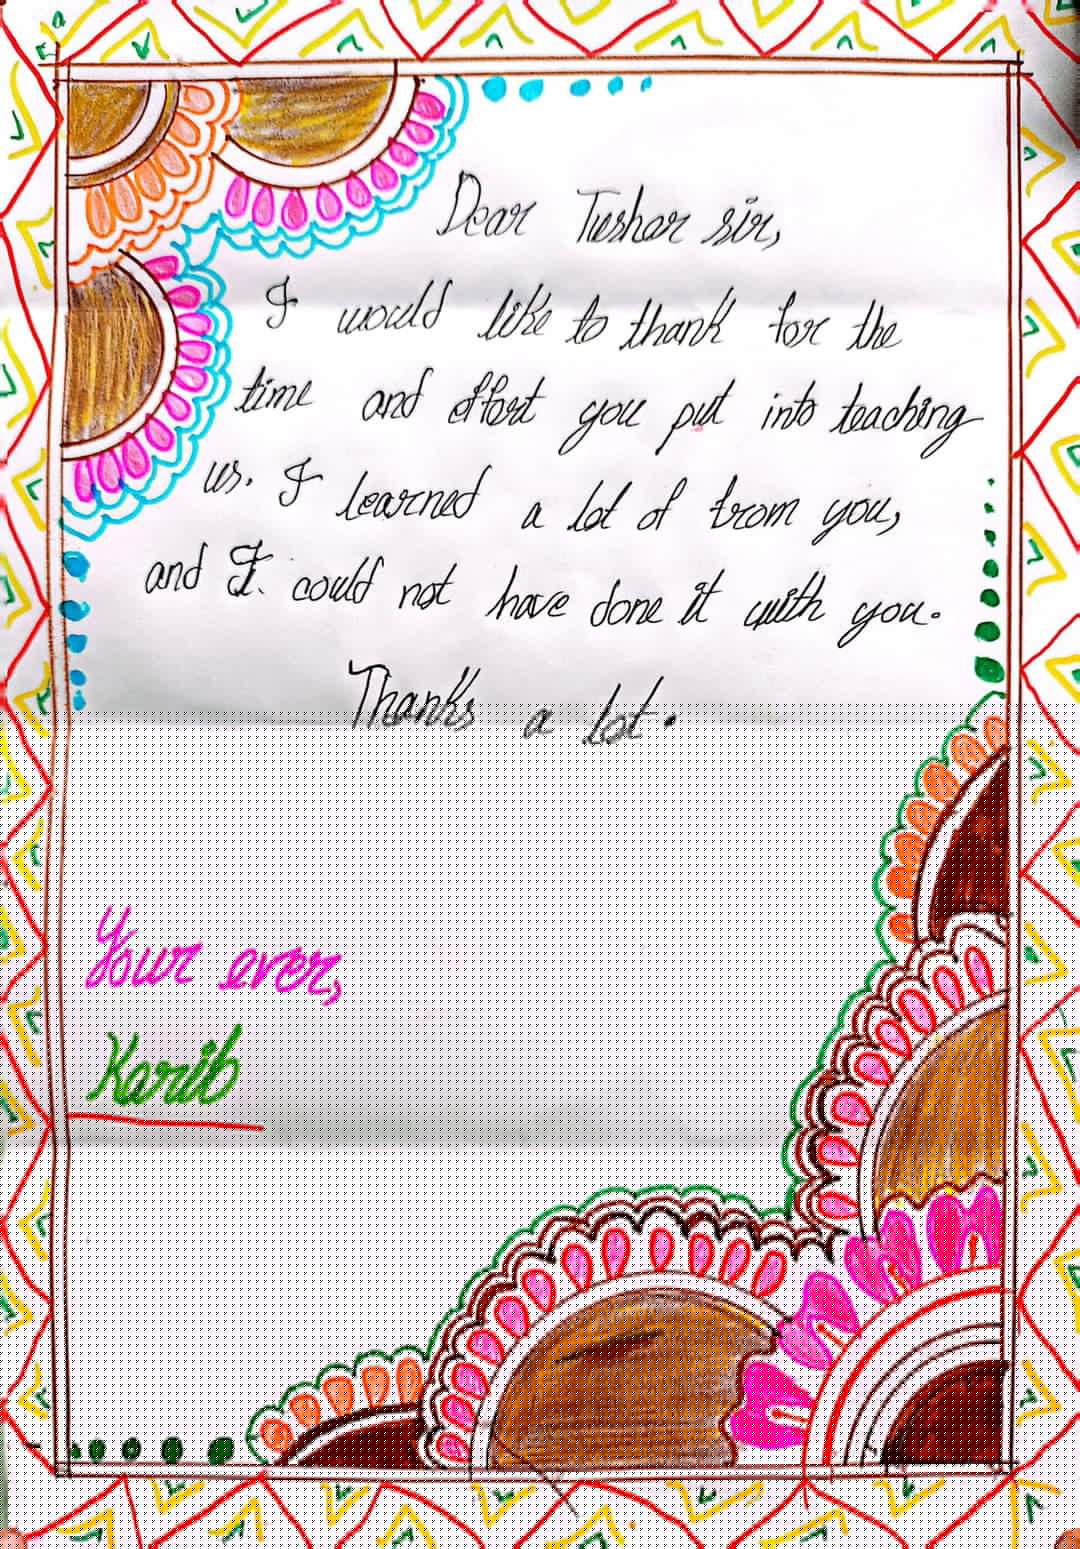 Dear Tusher sir,
I would like to thank for the
time and effort you put into teaching
us. I learned a lot of from you,
and I. could not have done it with you.
Thanks a lot.
Your ever,
Karib